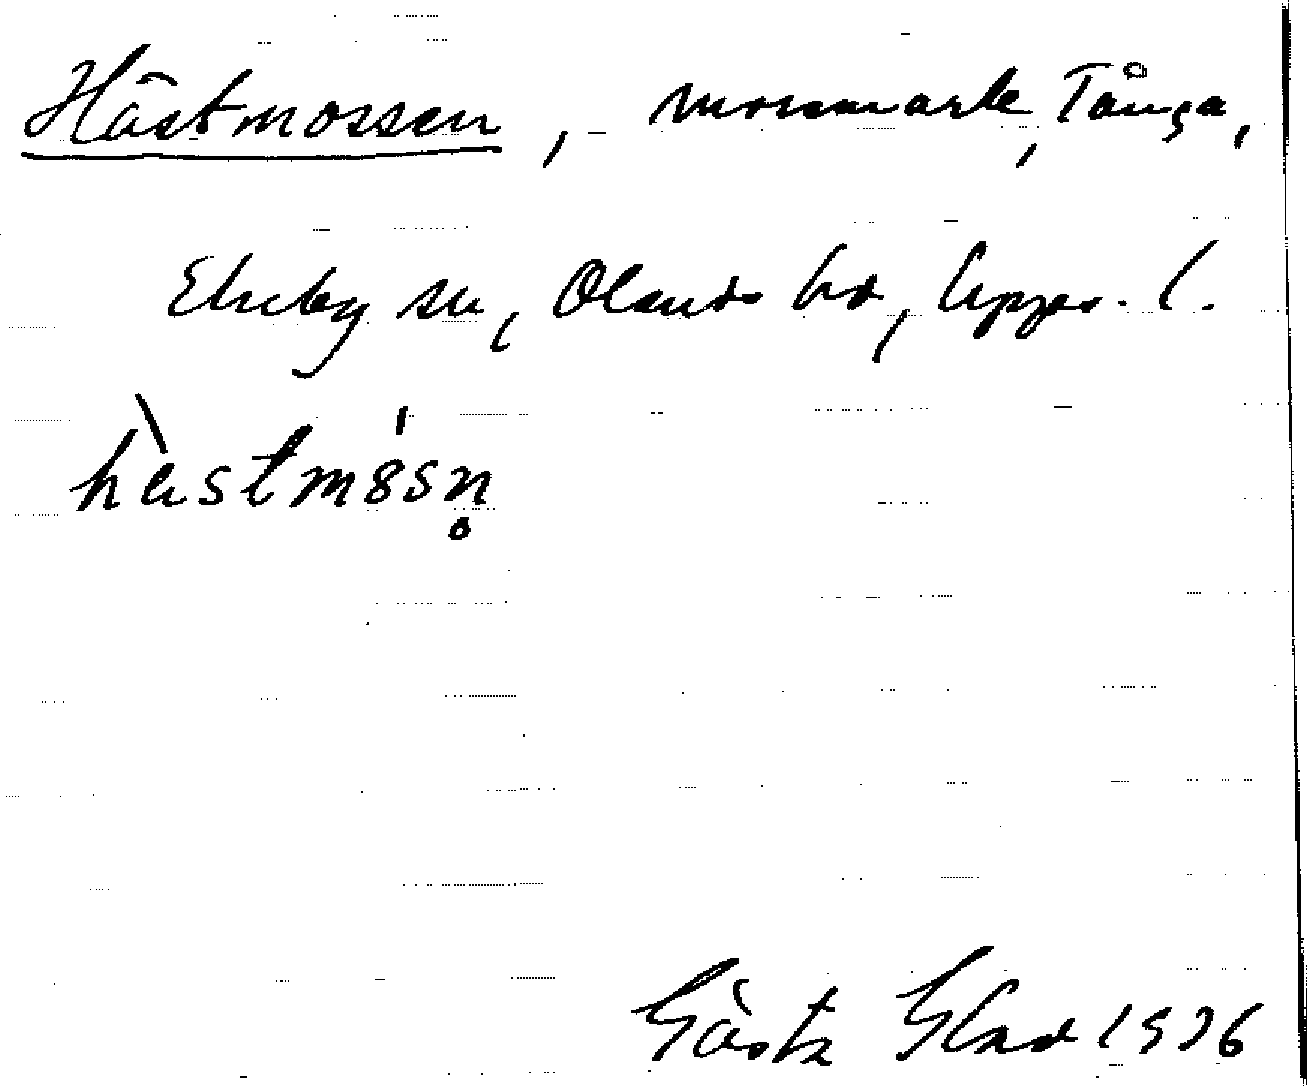 Hästmossen, mossmark, Tånga,
Ekeby sn, Olands hd, Upps. l.
hästmåsn̥
Gösta Glad 1936